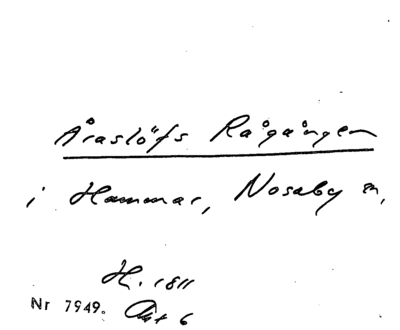 Åraslöfs Rågången
i Hammar, Nosaby sn,
H. 1811
Nr 7949. Akt 6